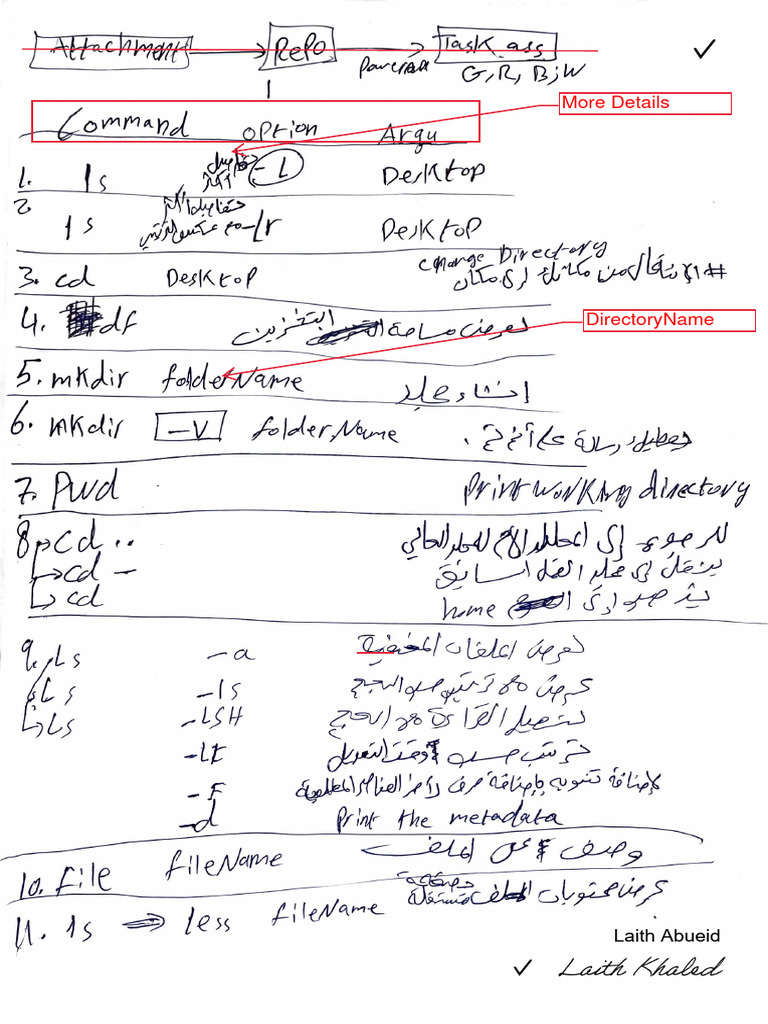 Attachment Repo Task ass
G, R, B, W
More Details
Command option Argu
1. ls تفاصيل أكثر -L Desktop
2 ls تفاصيل أكثر مع عكس الترتيب -Lr Desktop
change Directory
3. cd Desktop # الانتقال من مكان إلى مكان
4. df لعرض مساحة التخزين
DirectoryName
5. mkdir folderName إنشاء مجلد
6. mkdir -v folderName رسالة على
7. Pwd print working directory
8 cd .. للرجوع إلى المجلد الأم للمجلد الحالي
cd - ينتقل إلى مجلد العمل السابق
cd home
9. Ls -a لعرض الملفات المخفية
Ls -ls عرض مع ترتيب حسب الحجم
Ls -LSH لتسهيل القراءة مع الحجم
-Lt ترتيب حسب وقت التعديل
-F لإضافة تنويه بإضافة حرف العناصر
-d Print the metadata
10. File fileName وصف عن الملف
11. ls ⇒ less fileName عرض محتويات الملف
Laith Abueid
✓ Laith Khaled